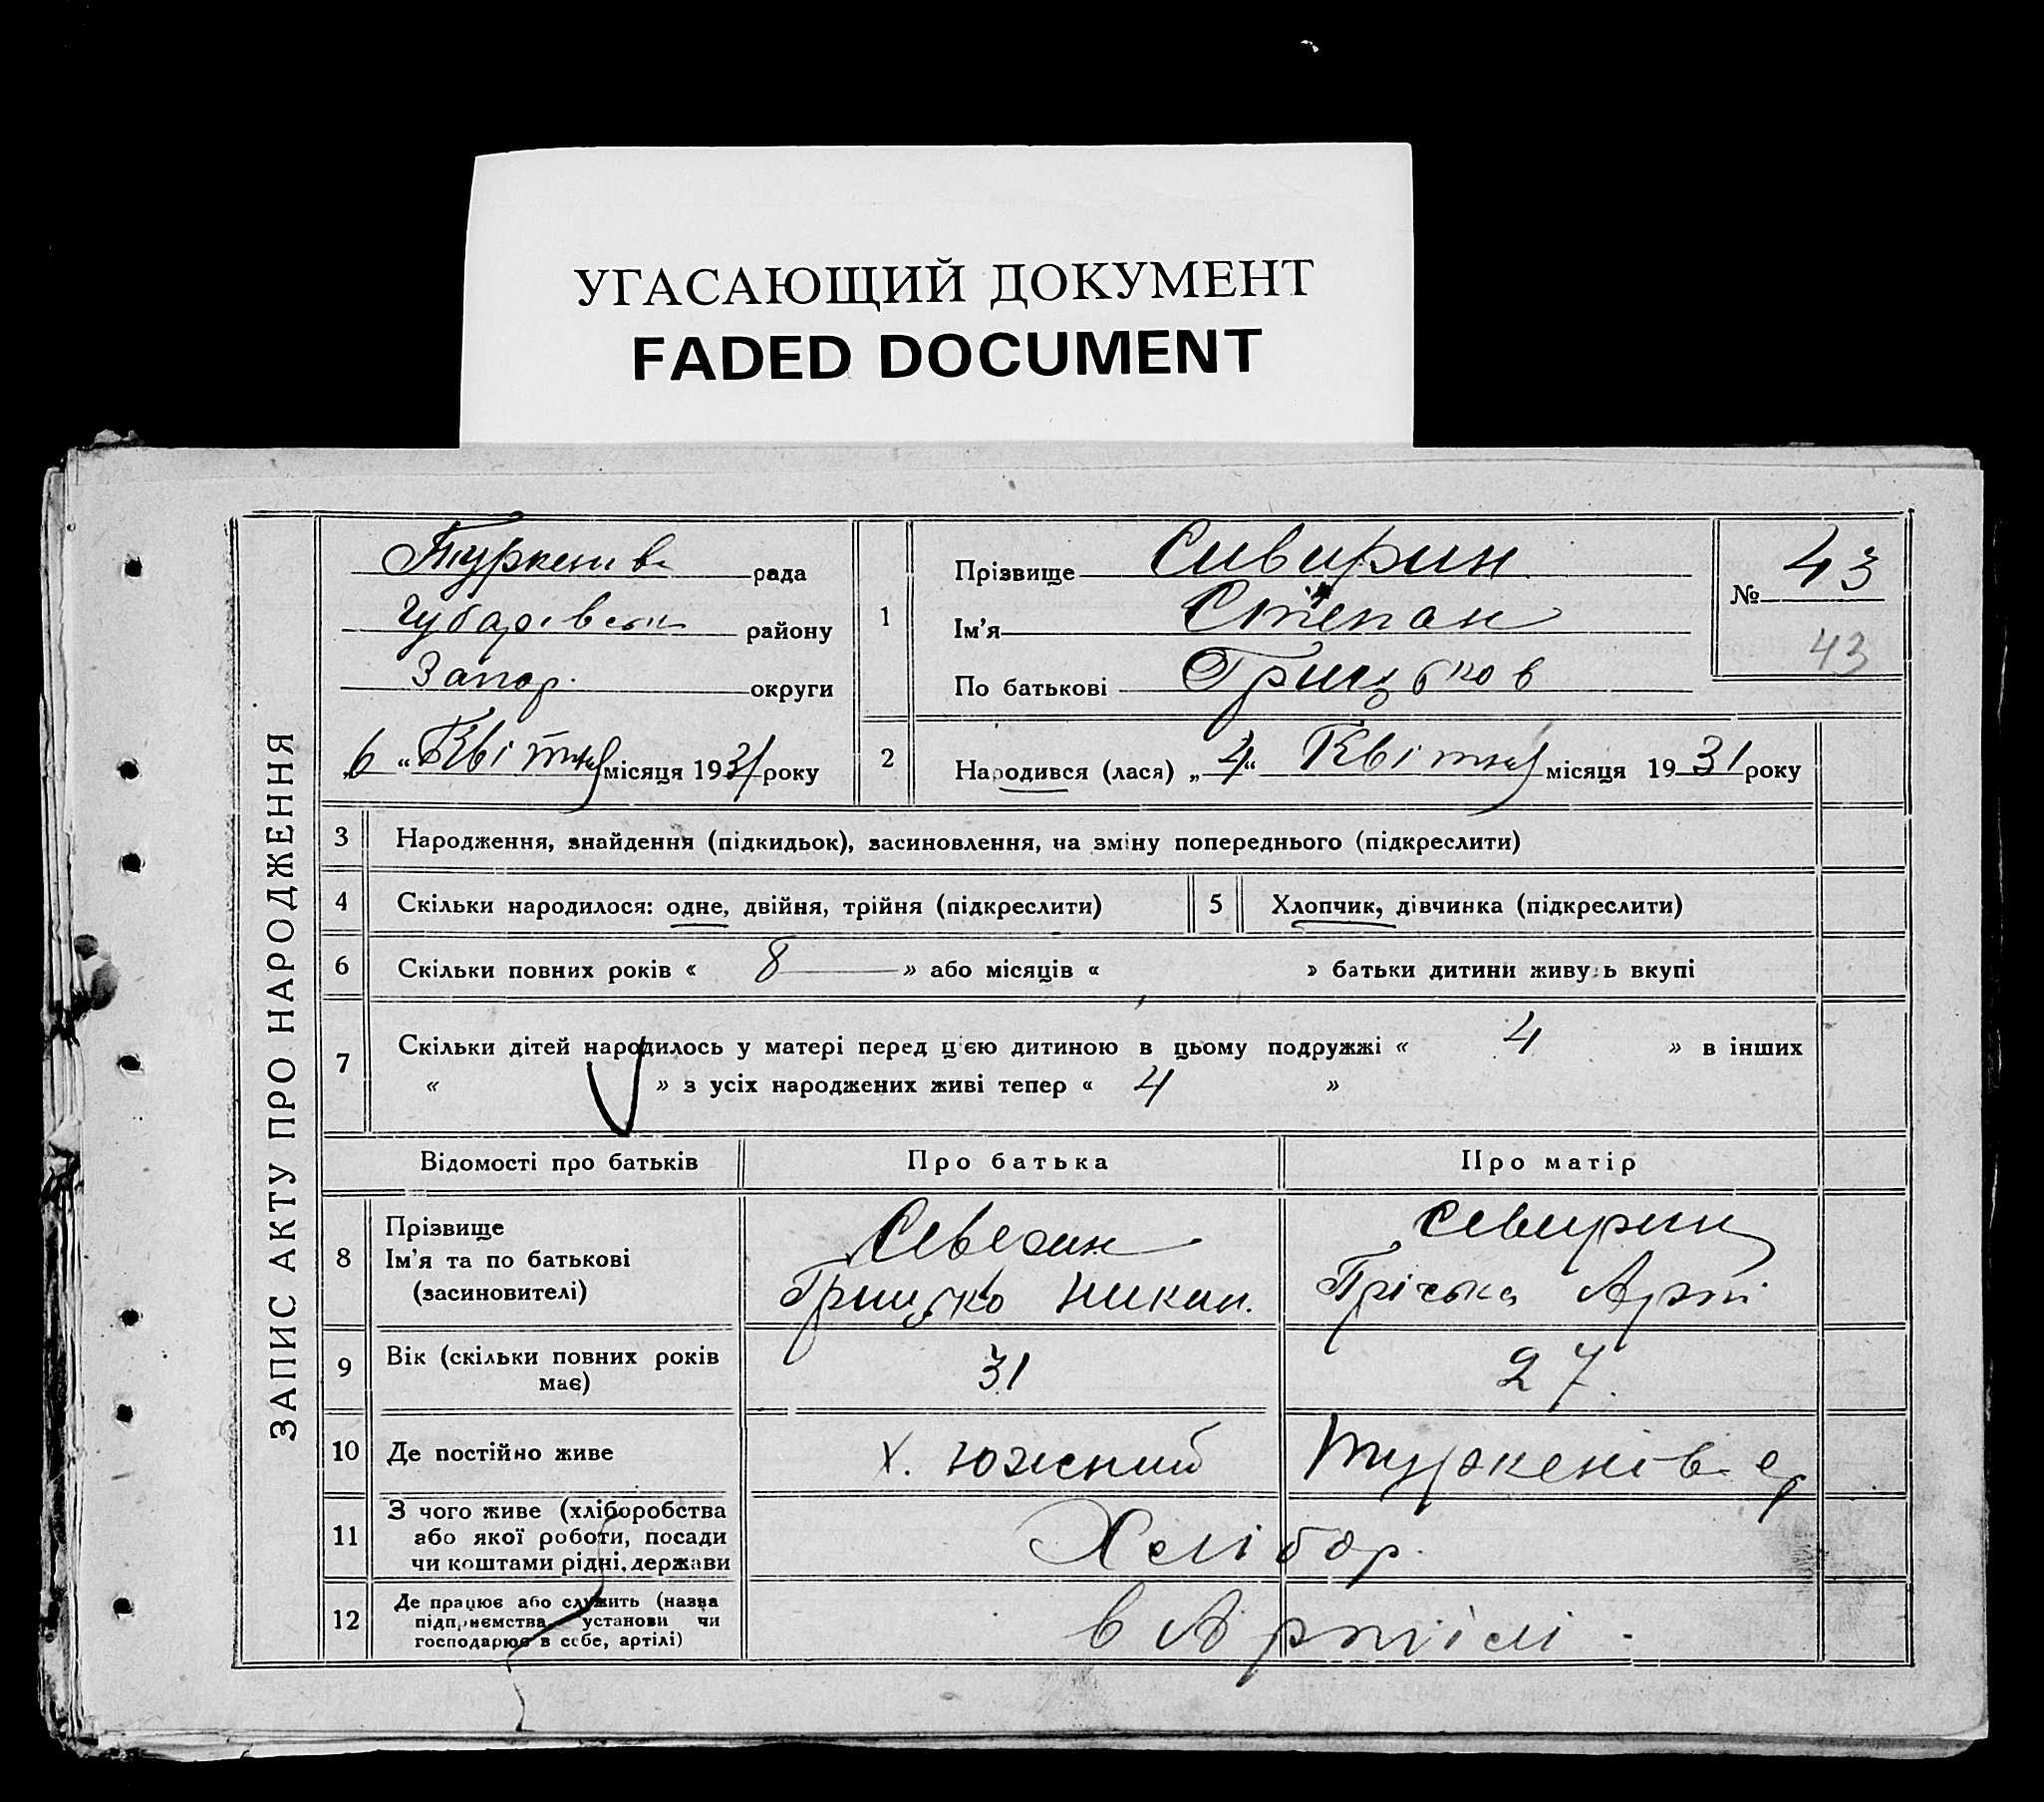 УГАСАЮЩИЙ ДОКУМЕНТ
FADED DOCUMENT
ЗАПИС АКТУ ПРО НАРОДЖЕННЯ
Туркенів рада
району
Запор. округи
„6“ Квітня місяця 1931 року
1
Прізвище Сивирин
Ім'я Степан
По батькові Грицьков
№ 43
43
2 Народився (лася) „4“ Квітня місяця 1931 року
3 Народження, знайдення (підкидьок), засиновлення, на зміну попереднього (підкреслити)
4 Скільки народилося: одне, двійня, трійня (підкреслити)
5 Хлопчик, дівчинка (підкреслити)
6 Скільки повних років « 8 » або місяців « » батьки дитини живуть вкупі
7 Скільки дітей народилось у матері перед цією дитиною в цьому подружжі « 4 » в інших
« » з усіх народжених живі тепер « 4 »
Відомості про батьків Про батька Про матір
8
Прізвище
Ім'я та по батькові
(засиновителі)
Грицько Никан.
Севирин
Пріська Арт
9 Вік (скільки повних років
має)
31 27.
10 Де постійно живе х. Южний Туркенів
11 З чого живе (хліборобства
або якої роботи, посади
чи коштами рідні, держави
Хлібор.
12 Де працює або служить (назва
підприємства, установи чи
господарює в себе, артілі)
в Артілі.